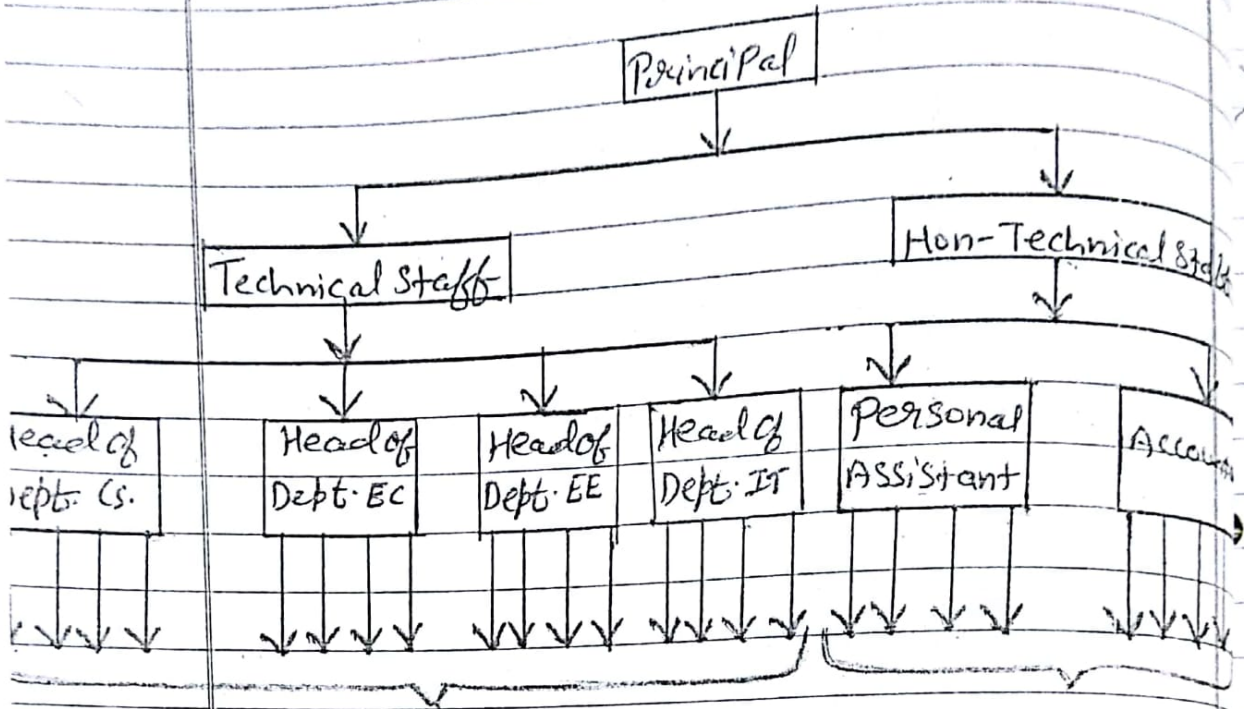 Principal
Technical Staff
Hon-Technical Staff
Head of
Dept. Cs.
Head of
Dept. EC
Head of
Dept. EE
Head of
Dept. IT
Personal
Assistant